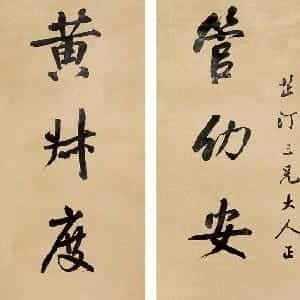 芷汀三兄大人正
管幼安
黄叔度